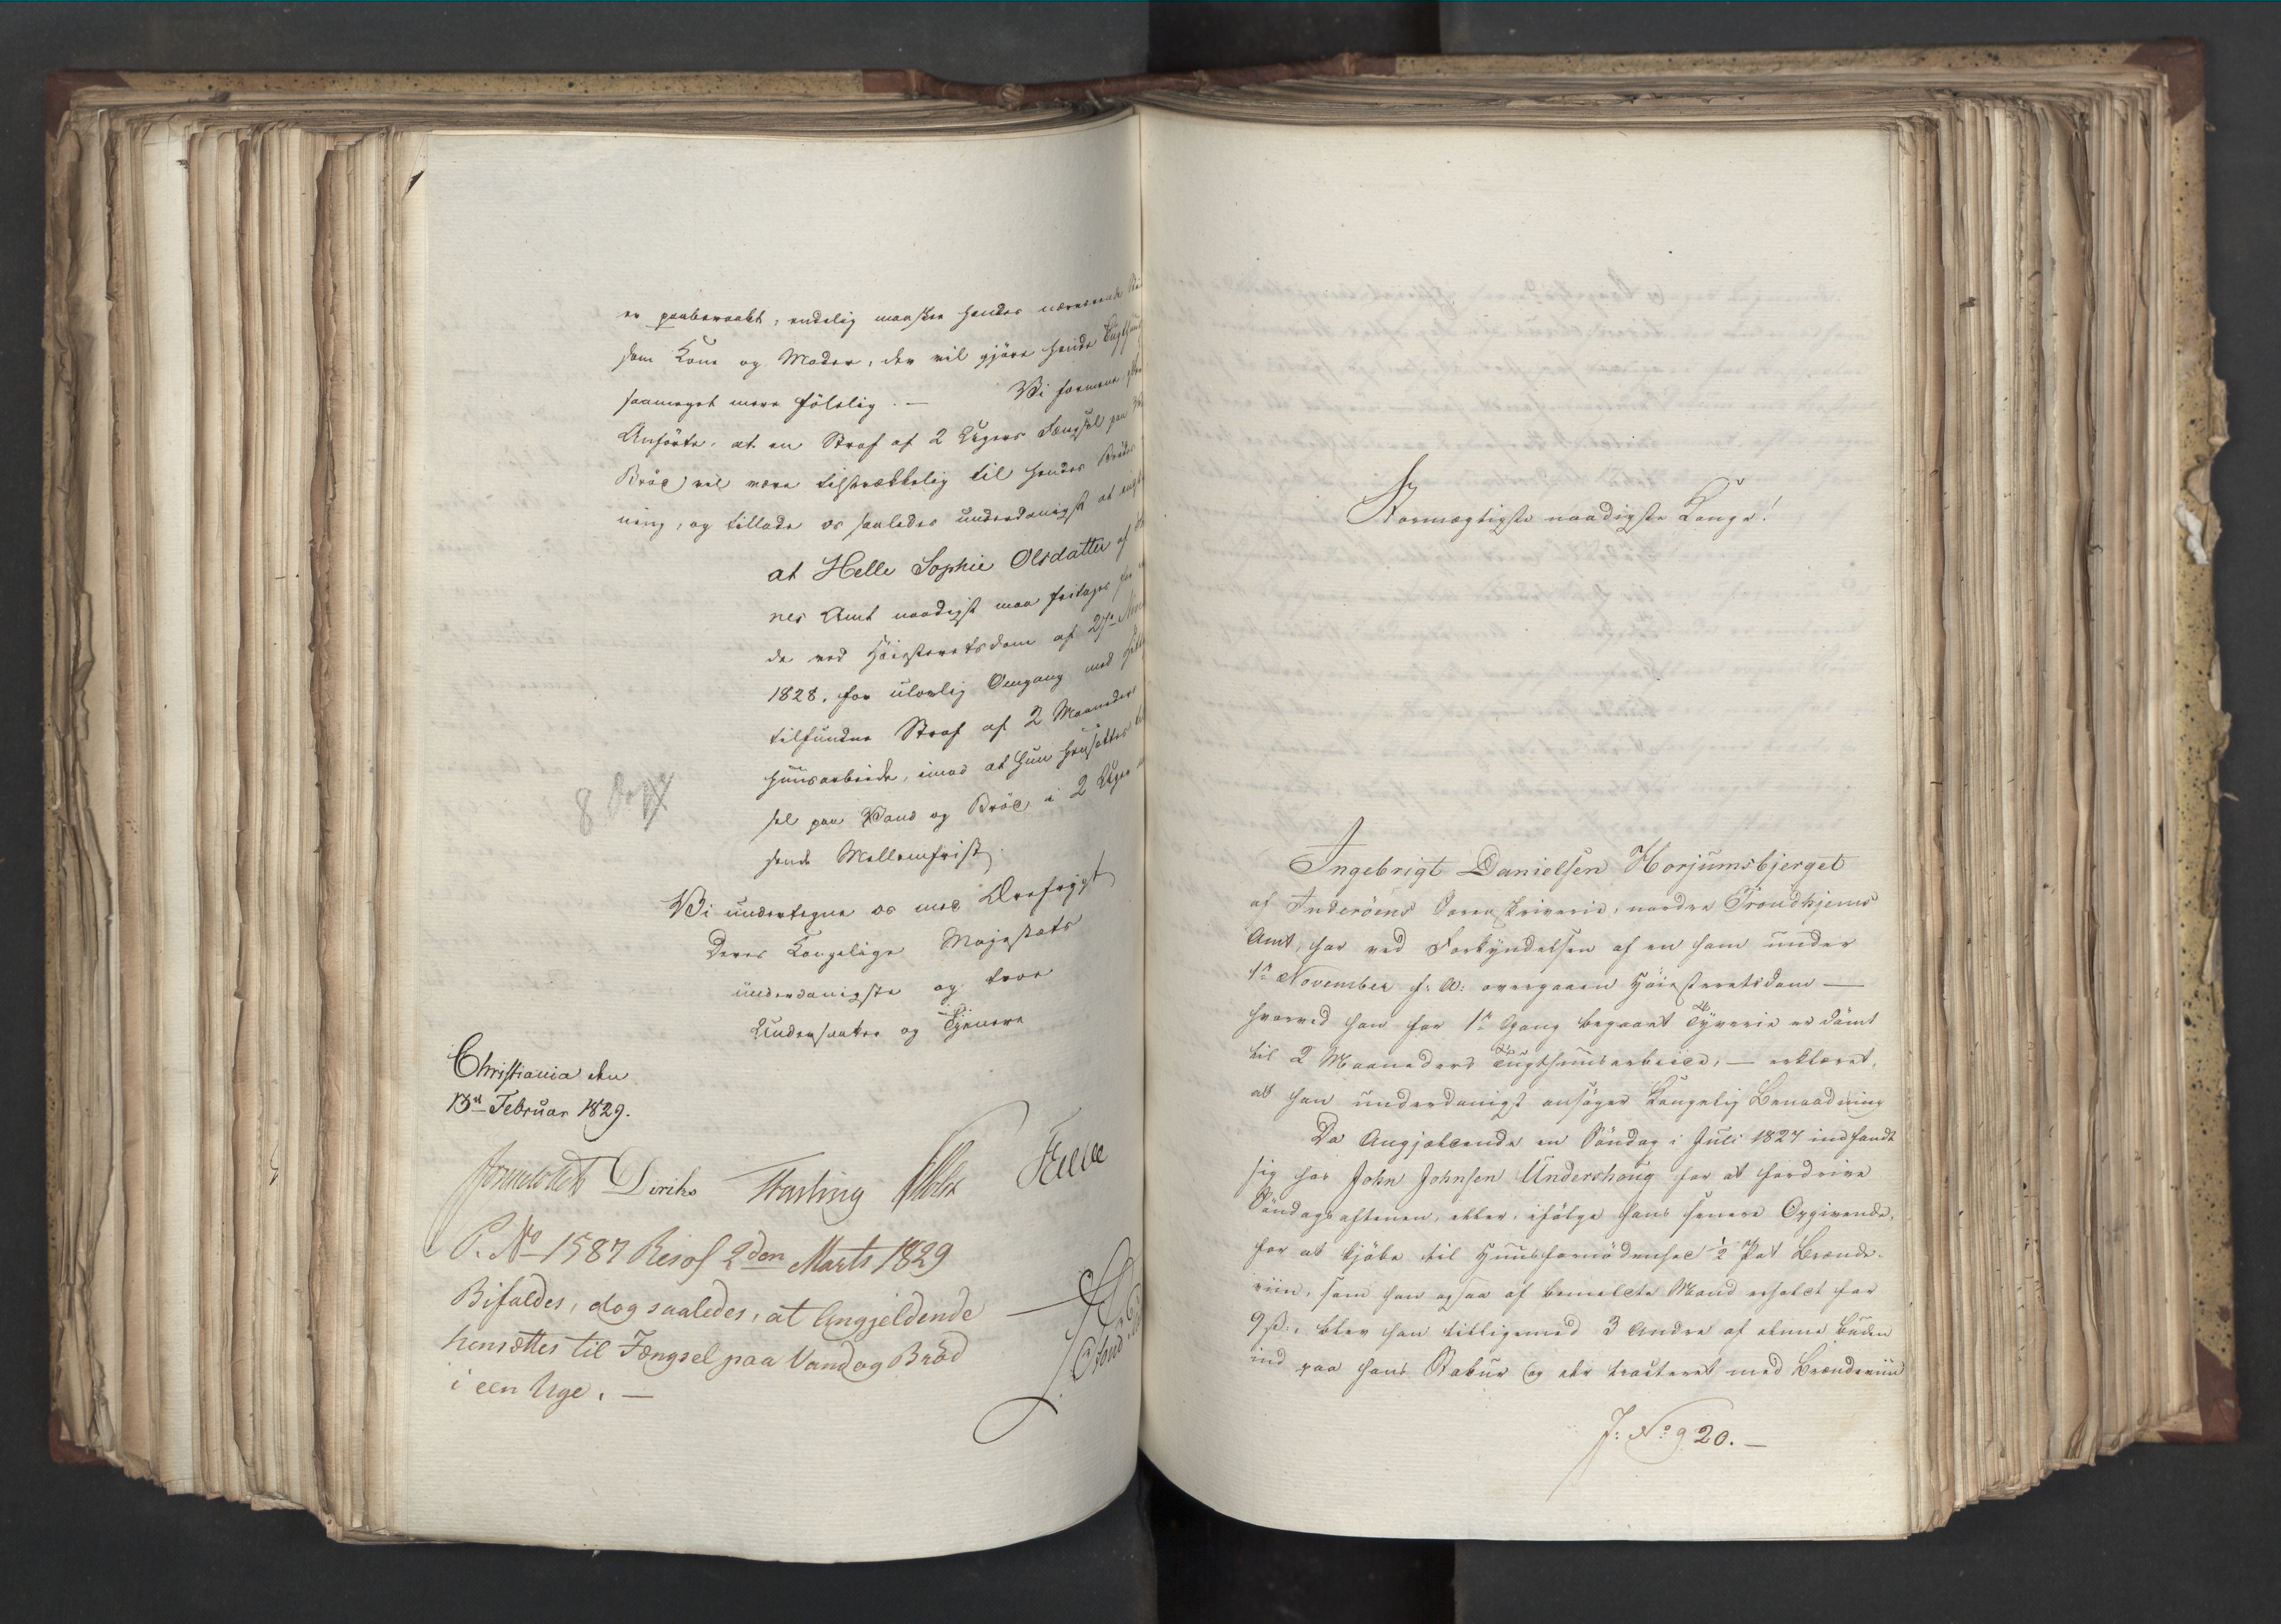 er paaberaabt, endelig maaskee hendes nærværende
som Kone og Moder, der vil gjøre hende
saameget mere følelig. — Vi formene
Anførte, at en Straf af 2 Ugers Fængsel paa
Brød vil være tilstrækkelig til hendes
ning, og tillade os saaledes underdanigst at
at Helle Sophie Olsdatter af
nes Amt naadigst maa fritages for
de ved Høiesteretsdom af 27de
1828, for ulovlig Omgang med
tilfundne Straf af 2 Maaneders
huusarbeide, imod at hun hensættes
sel paa Vand og Brød i 2 Uger
sende Mellemfrist.
8 Dage
Vi undertegne os med Ærefrygt
Deres Kongelige Majestæts
underdanigste og troe
Undersaatter og Tjenere
Christiania den
13de Februar 1829.
Diriks
P. No 1587 Resol 2den Marts 1829
Bifaldes, dog saaledes, at Angjeldende
hensættes til Fængsel paa Vand og Brød
i een Uge. —
Stormægtigste naadigste Konge!
Ingebrigt Danielsen Horjumsbjerget
af Inderøens Sorenskriverie, nordre Trondhjems
Amt, har ved Forkyndelsen af en ham under
1ste November f: A: overgaaen Høiesteretsdom —
hvorved han for 1ste Gang begaaet Tyverie er dømt
til 2 Maaneders Tugthuusarbeide, — erklæret,
at han underdanigst ansøger Kongelig Benaadning
Da Angjældende en Søndag i Juli 1827 indfandt
sig hos John Johnsen Undershoug for at fordrive
Søndagsaftenen, eller, ifølge hans senere Opgivende,
for at kjøbe til Huusfornødenhed ½ Pot Brænde-
viin, som han ogsaa af bemeldte Mand erholdt for
9 ß:, blev han tilligemed 3 Andre af denne buden
ind paa hans Stabur og der tracteret med Brændeviin
J: No 920. —